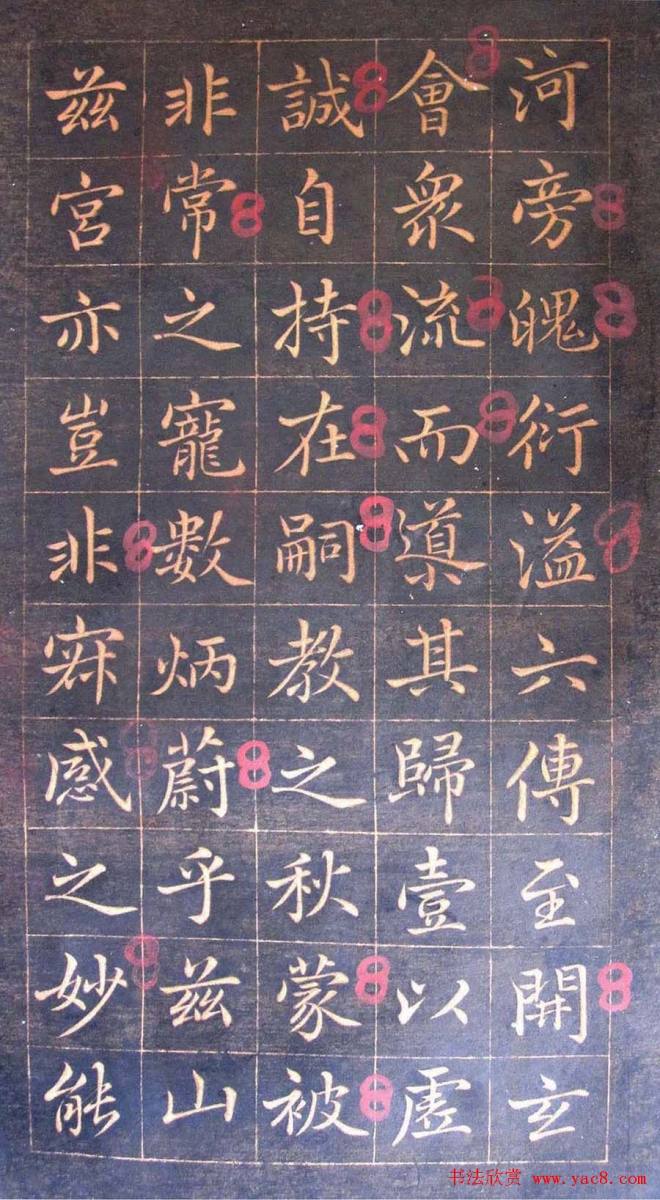 河旁魄衍溢六傳至開玄
會衆流而㵀其歸壹以虛
誠自持在嗣教之秋蒙被
非常之寵數炳蔚乎兹山
兹宮亦豈非寂感之妙能
书法欣赏 www.yac8.com